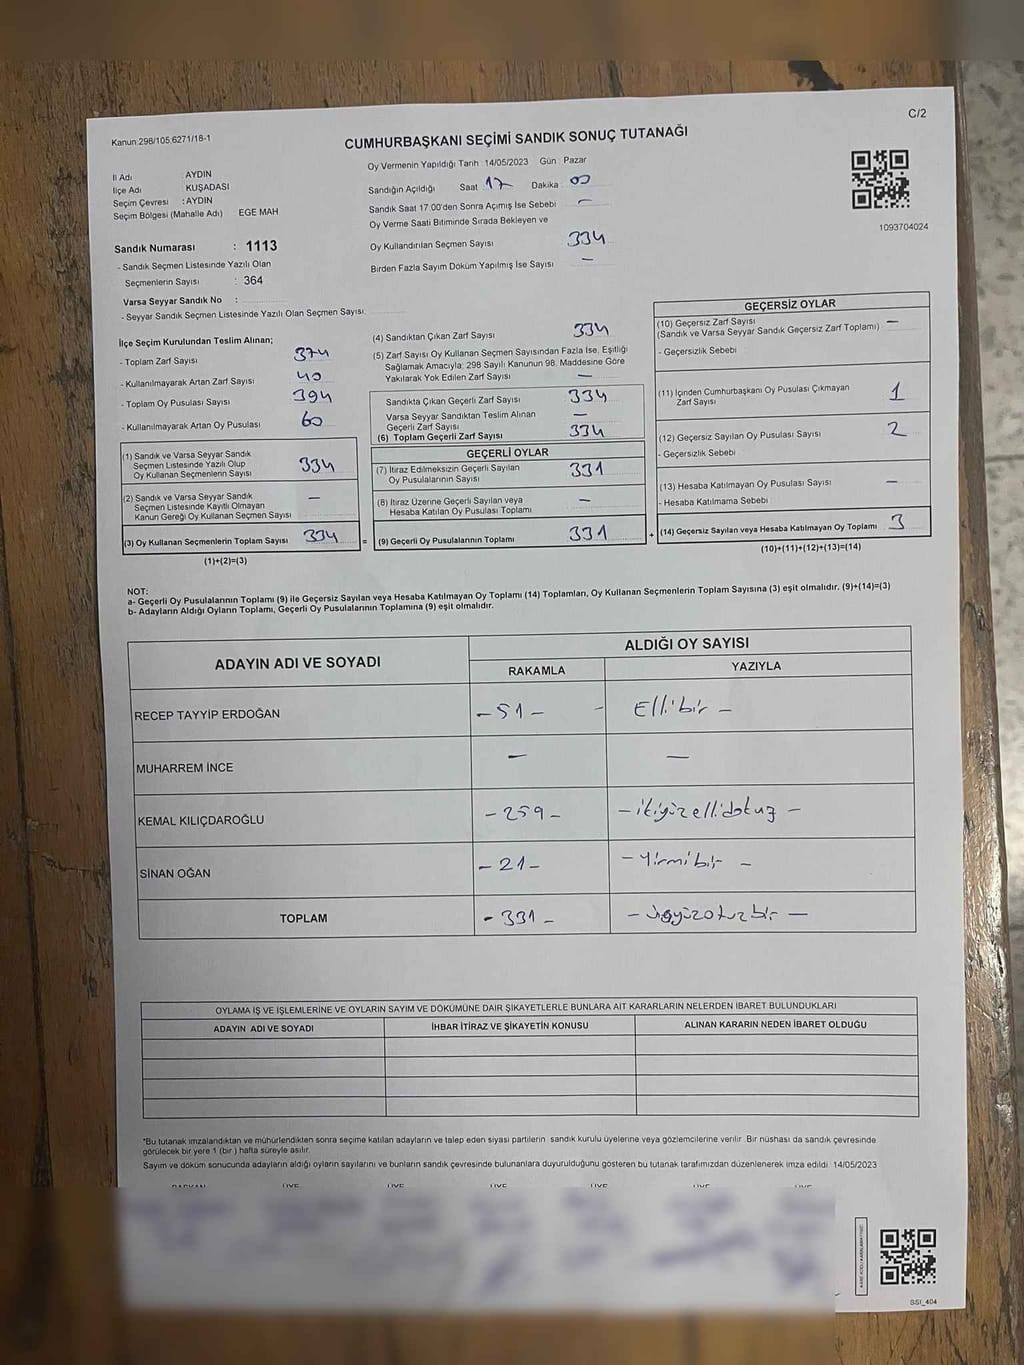 C/2
Kanun:298/105,6271/18-1
CUMHURBAŞKANI SEÇİMİ SANDIK SONUÇ TUTANAĞI
Oy Vermenin Yapıldığı Tarih 14/05/2023 Gün : Pazar
İl Adı AYDIN
İlçe Adı KUŞADASI
Seçim Çevresi : AYDIN
Seçim Bölgesi (Mahalle Adı) EGE MAH
Sandığın Açıldığı Saat 17 Dakika : 00
Sandık Saat 17:00'den Sonra Açımış İse Sebebi —
Oy Verme Saati Bitiminde Sırada Bekleyen ve
Oy Kullandırılan Seçmen Sayısı 334
Birden Fazla Sayım Döküm Yapılmış İse Sayısı —
1093704024
Sandık Numarası : 1113
- Sandık Seçmen Listesinde Yazılı Olan
Seçmenlerin Sayısı : 364
Varsa Seyyar Sandık No :
- Seyyar Sandık Seçmen Listesinde Yazılı Olan Seçmen Sayısı:
İlçe Seçim Kurulundan Teslim Alınan;
- Toplam Zarf Sayısı 374
- Kullanılmayarak Artan Zarf Sayısı 40
- Toplam Oy Pusulası Sayısı 394
- Kullanılmayarak Artan Oy Pusulası 60
(1) Sandık ve Varsa Seyyar Sandık
Seçmen Listesinde Yazılı Olup
Oy Kullanan Seçmenlerin Sayısı 334
(2) Sandık ve Varsa Seyyar Sandık
Seçmen Listesinde Kayıtlı Olmayan
Kanun Gereği Oy Kullanan Seçmen Sayısı —
(3) Oy Kullanan Seçmenlerin Toplam Sayısı 334 =
(1)+(2)=(3)
(4) Sandıktan Çıkan Zarf Sayısı 334
(5) Zarf Sayısı Oy Kullanan Seçmen Sayısından Fazla İse, Eşitliği
Sağlamak Amacıyla; 298 Sayılı Kanunun 98. Maddesine Göre
Yakılarak Yok Edilen Zarf Sayısı —
Sandıkta Çıkan Geçerli Zarf Sayısı 334
Varsa Seyyar Sandıktan Teslim Alınan
Geçerli Zarf Sayısı —
(6) Toplam Geçerli Zarf Sayısı 334
GEÇERLİ OYLAR
(7) İtiraz Edilmeksizin Geçerli Sayılan
Oy Pusulalarının Sayısı 331
(8) İtiraz Üzerine Geçerli Sayılan veya
Hesaba Katılan Oy Pusulası Toplamı —
(9) Geçerli Oy Pusulalarının Toplamı 331 +
GEÇERSİZ OYLAR
(10) Geçersiz Zarf Sayısı —
(Sandık ve Varsa Seyyar Sandık Geçersiz Zarf Toplamı)
- Geçersizlik Sebebi
(11) İçinden Cumhurbaşkanı Oy Pusulası Çıkmayan
Zarf Sayısı 1
(12) Geçersiz Sayılan Oy Pusulası Sayısı 2
- Geçersizlik Sebebi
(13) Hesaba Katılmayan Oy Pusulası Sayısı —
- Hesaba Katılmama Sebebi
(14) Geçersiz Sayılan veya Hesaba Katılmayan Oy Toplamı 3
(10)+(11)+(12)+(13)=(14)
NOT:
a- Geçerli Oy Pusulalarının Toplamı (9) ile Geçersiz Sayılan veya Hesaba Katılmayan Oy Toplamı (14) Toplamları, Oy Kullanan Seçmenlerin Toplam Sayısına (3) eşit olmalıdır. (9)+(14)=(3)
b- Adayların Aldığı Oyların Toplamı, Geçerli Oy Pusulalarının Toplamına (9) eşit olmalıdır.
ADAYIN ADI VE SOYADI
ALDIĞI OY SAYISI
RAKAMLA YAZIYLA
RECEP TAYYİP ERDOĞAN - 51 - - Ellibir -
MUHARREM İNCE — —
KEMAL KILIÇDAROĞLU - 259 - - ikiyüzellidokuz -
SİNAN OĞAN - 21 - - Yirmibir -
TOPLAM - 331 - - üçyüzotuzbir -
OYLAMA İŞ VE İŞLEMLERİNE VE OYLARIN SAYIM VE DÖKÜMÜNE DAİR ŞİKAYETLERLE BUNLARA AİT KARARLARIN NELERDEN İBARET BULUNDUKLARI
ADAYIN ADI VE SOYADI İHBAR İTİRAZ VE ŞİKAYETİN KONUSU ALINAN KARARIN NEDEN İBARET OLDUĞU
*Bu tutanak imzalandıktan ve mühürlendikten sonra seçime katılan adayların ve talep eden siyasi partilerin sandık kurulu üyelerine veya gözlemcilerine verilir. Bir nüshası da sandık çevresinde
görülecek bir yere 1 (bir) hafta süreyle asılır.
Sayım ve döküm sonucunda adayların aldığı oyların sayılarını ve bunların sandık çevresinde bulunanlara duyurulduğunu gösteren bu tutanak tarafımızdan düzenlenerek imza edildi. 14/05/2023
SSI_404